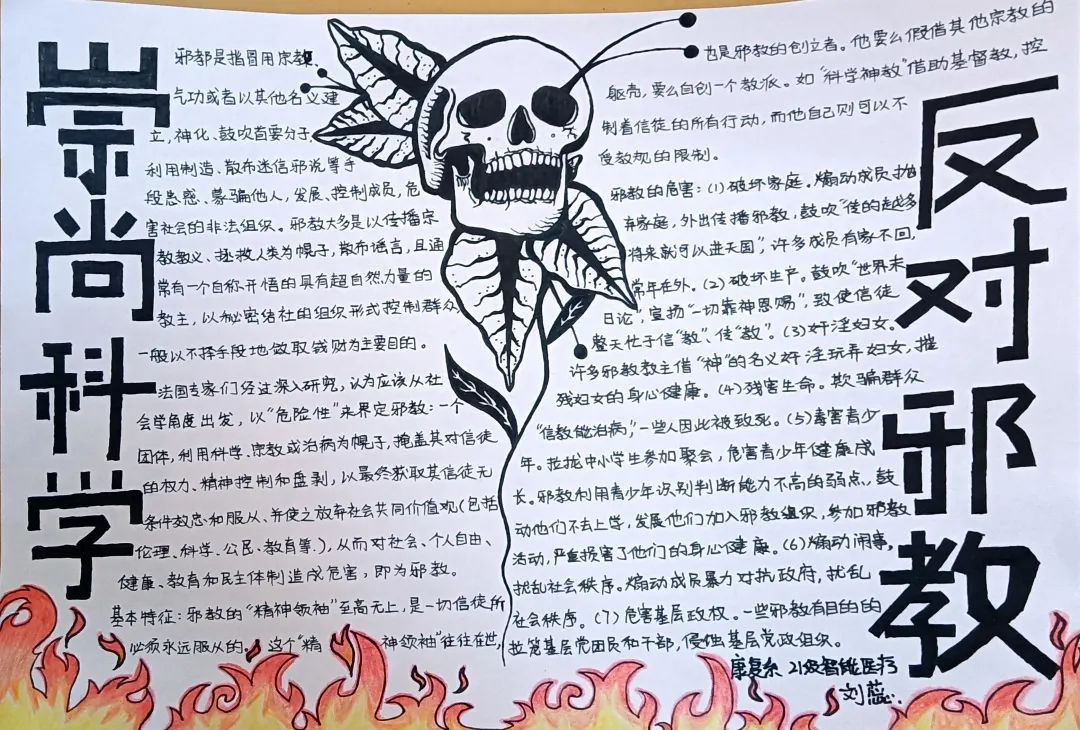 崇尚科学
邪都是指冒用宗教、
气功或者以其他名义建
立，神化、鼓吹首要分子，
利用制造、散布迷信邪说等手
段蛊惑、蒙骗他人，发展、控制成员，危
害社会的非法组织。邪教大多是以传播宗
教教义、拯救人类为幌子，散布谣言，且通
常有一个自称开悟的具有超自然力量的
教主，以秘密结社的组织形式控制群众，
一般以不择手段地做取钱财为主要目的。
法国专家们经过深入研究，认为应该从社
会学角度出发，以“危险性”来界定邪教：一个
团体，利用科学、宗教或治病为幌子，掩盖其对信徒
的权力、精神控制和盘剥，以最终获取其信徒无
条件效忠和服从、并使之放弃社会共同价值观（包括
伦理、科学、公民、教育等.），从而对社会、个人自由、
健康、教育和民主体制造成危害，即为邪教。
基本特征：邪教的“精神领袖”至高无上，是一切信徒所
必须永远服从的。这个“精 神领袖”往往在世，
也是邪教的创立者。他要么假借其他宗教的
躯壳，要么自创一个教派。如“科学神教”借助基督教，控
制着信徒的所有行动，而他自己则可以不
受教规的限制。
邪教的危害：（1）破坏家庭。煽动成员抛
弃家庭，外出传播邪教，鼓吹“传的越多
将来就可以进天国”，许多成员有家不回，
常年在外。（2）破坏生产。鼓吹“世界末
日论”，宣扬“一切靠神恩赐”，致使信徒
整天忙于信“教”、传“教”。（3）奸淫妇女。
许多邪教教主借“神”的名义奸淫玩弄妇女，摧
残妇女的身心健康。（4）残害生命。欺骗群众
“信教能治病”，一些人因此被致死。（5）毒害青少
年。拉拢中小学生参加聚会，危害青少年健康成
长。邪教利用青少年识别判断能力不高的弱点，鼓
动他们不去上学，发展他们加入邪教组织，参加邪教
活动，严重损害了他们的身心健康。（6）煽动闹事，
扰乱社会秩序。煽动成员暴力对抗政府，扰乱
社会秩序。（7）危害基层政权。一些邪教有目的的
拉笼基层党团员和干部，侵蚀基层党政组织。
康复系 21级智能医疗
刘蕊
反对邪教